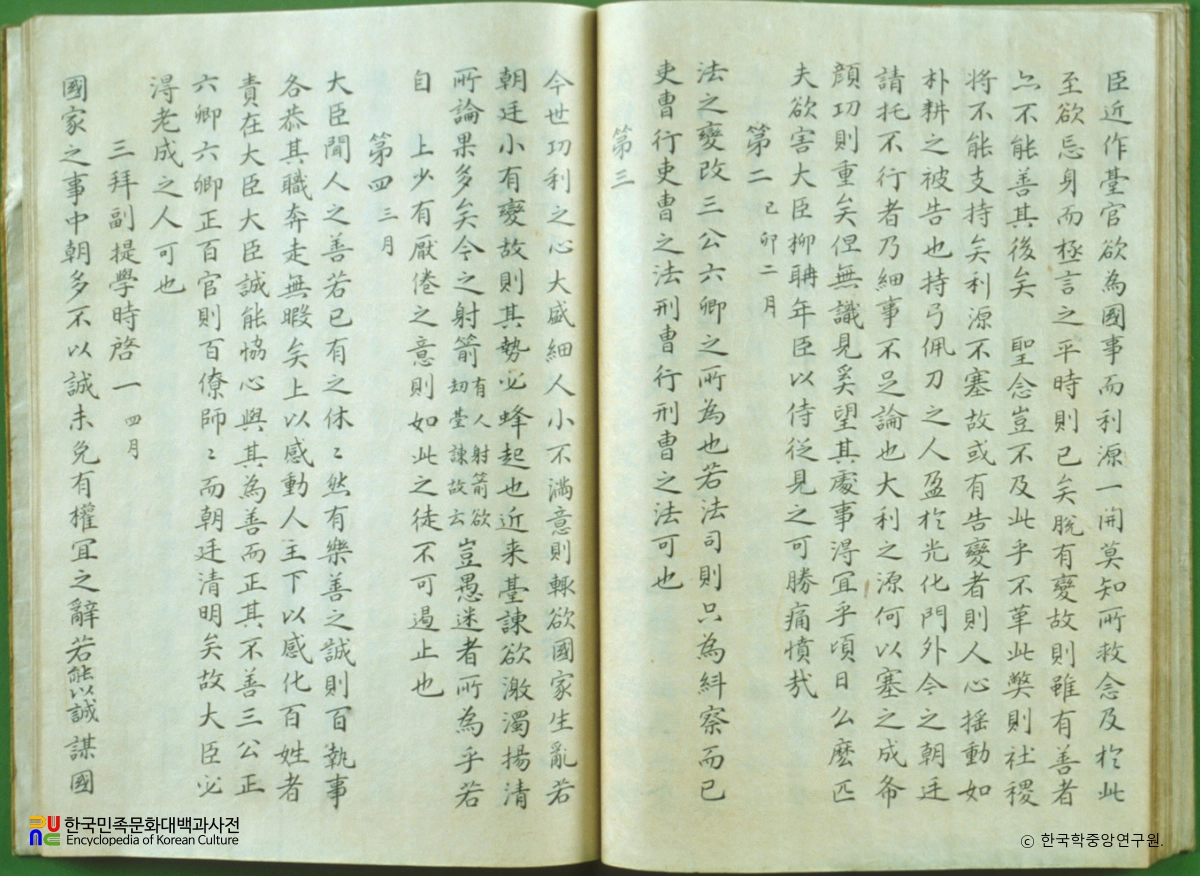 臣近作臺官欲為國事而利源一開莫知所救念及於此
至欲忘身而極言之平時則已矣脫有變故則雖有善者
亦不能善其後矣 聖念豈不及此乎不革此弊則社稷
將不能支持矣利源不塞故或有告變者則人心搖動如
朴耕之被告也持弓佩刀之人盈於光化門外今之朝廷
請托不行者乃細事不足論也大利之源何以塞之成希
顔功則重矣俚無識見奚望其處事得宜乎頃日么麽匹
夫欲害大臣柳聃年臣以侍從見之可勝痛憤㢤
第二 己卯二月
法之變改三公六卿之所為也若法司則只為糾察而已
吏曹行吏曹之法刑曹行刑曹之法可也
第三
今世功利之心大盛細人小不滿意則輒欲國家生亂若
朝廷小有變故則其勢必蜂起也近来臺諫欲激濁揚清
所論果多矣今之射箭有人射箭欲劫臺諫故云豈愚迷者所為乎若
自 上少有厭倦之意則如此之徒不可遏止也
第四 三月
大臣聞人之善若已有之休〻然有樂善之誠則百執事
各恭其職奔走無暇矣上以感動人主下以感化百姓者
責在大臣大臣誠能協心與其為善而正其不善三公正
六卿六卿正百官則百僚師〻而朝廷清明矣故大臣必
得老成之人可也
三拜副提學時啓一 四月
國家之事中朝多不以誠未免有權宜之辭若能以誠謀國
한국민족문화대백과사전
Encyclopedia of Korean Culture
ⓒ 한국학중앙연구원.